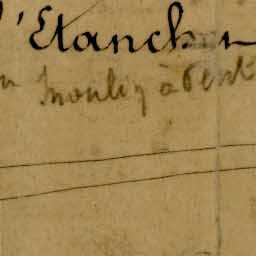 l'Etanchon
n Moulin à Vent